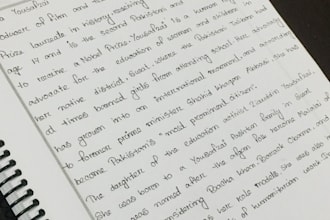 Yousafzai
oducer of film and
Prize laureate in history
age 17 and is the second Pakistani and
to receive a Nobel Prize. Yousafzai is a human
advocate for the education of women and children in
her native district, Swat, where the Pakistani Taliban had
at times banned girls from attending school. Her advocacy
has grown into an international movement, and according
to former prime minister Shahid Khaqan Abbasi, she has
become Pakistan's "most prominent citizen."
The daughter of the education activist Ziauddin Yousafzai,
She was born to a Yousafzai Pashtun family in Swat
was named after the afghan folk heroine Malalai of
considering Bacha Khan, Barack Obama, and
as her role models, she was also
of humanitarian work